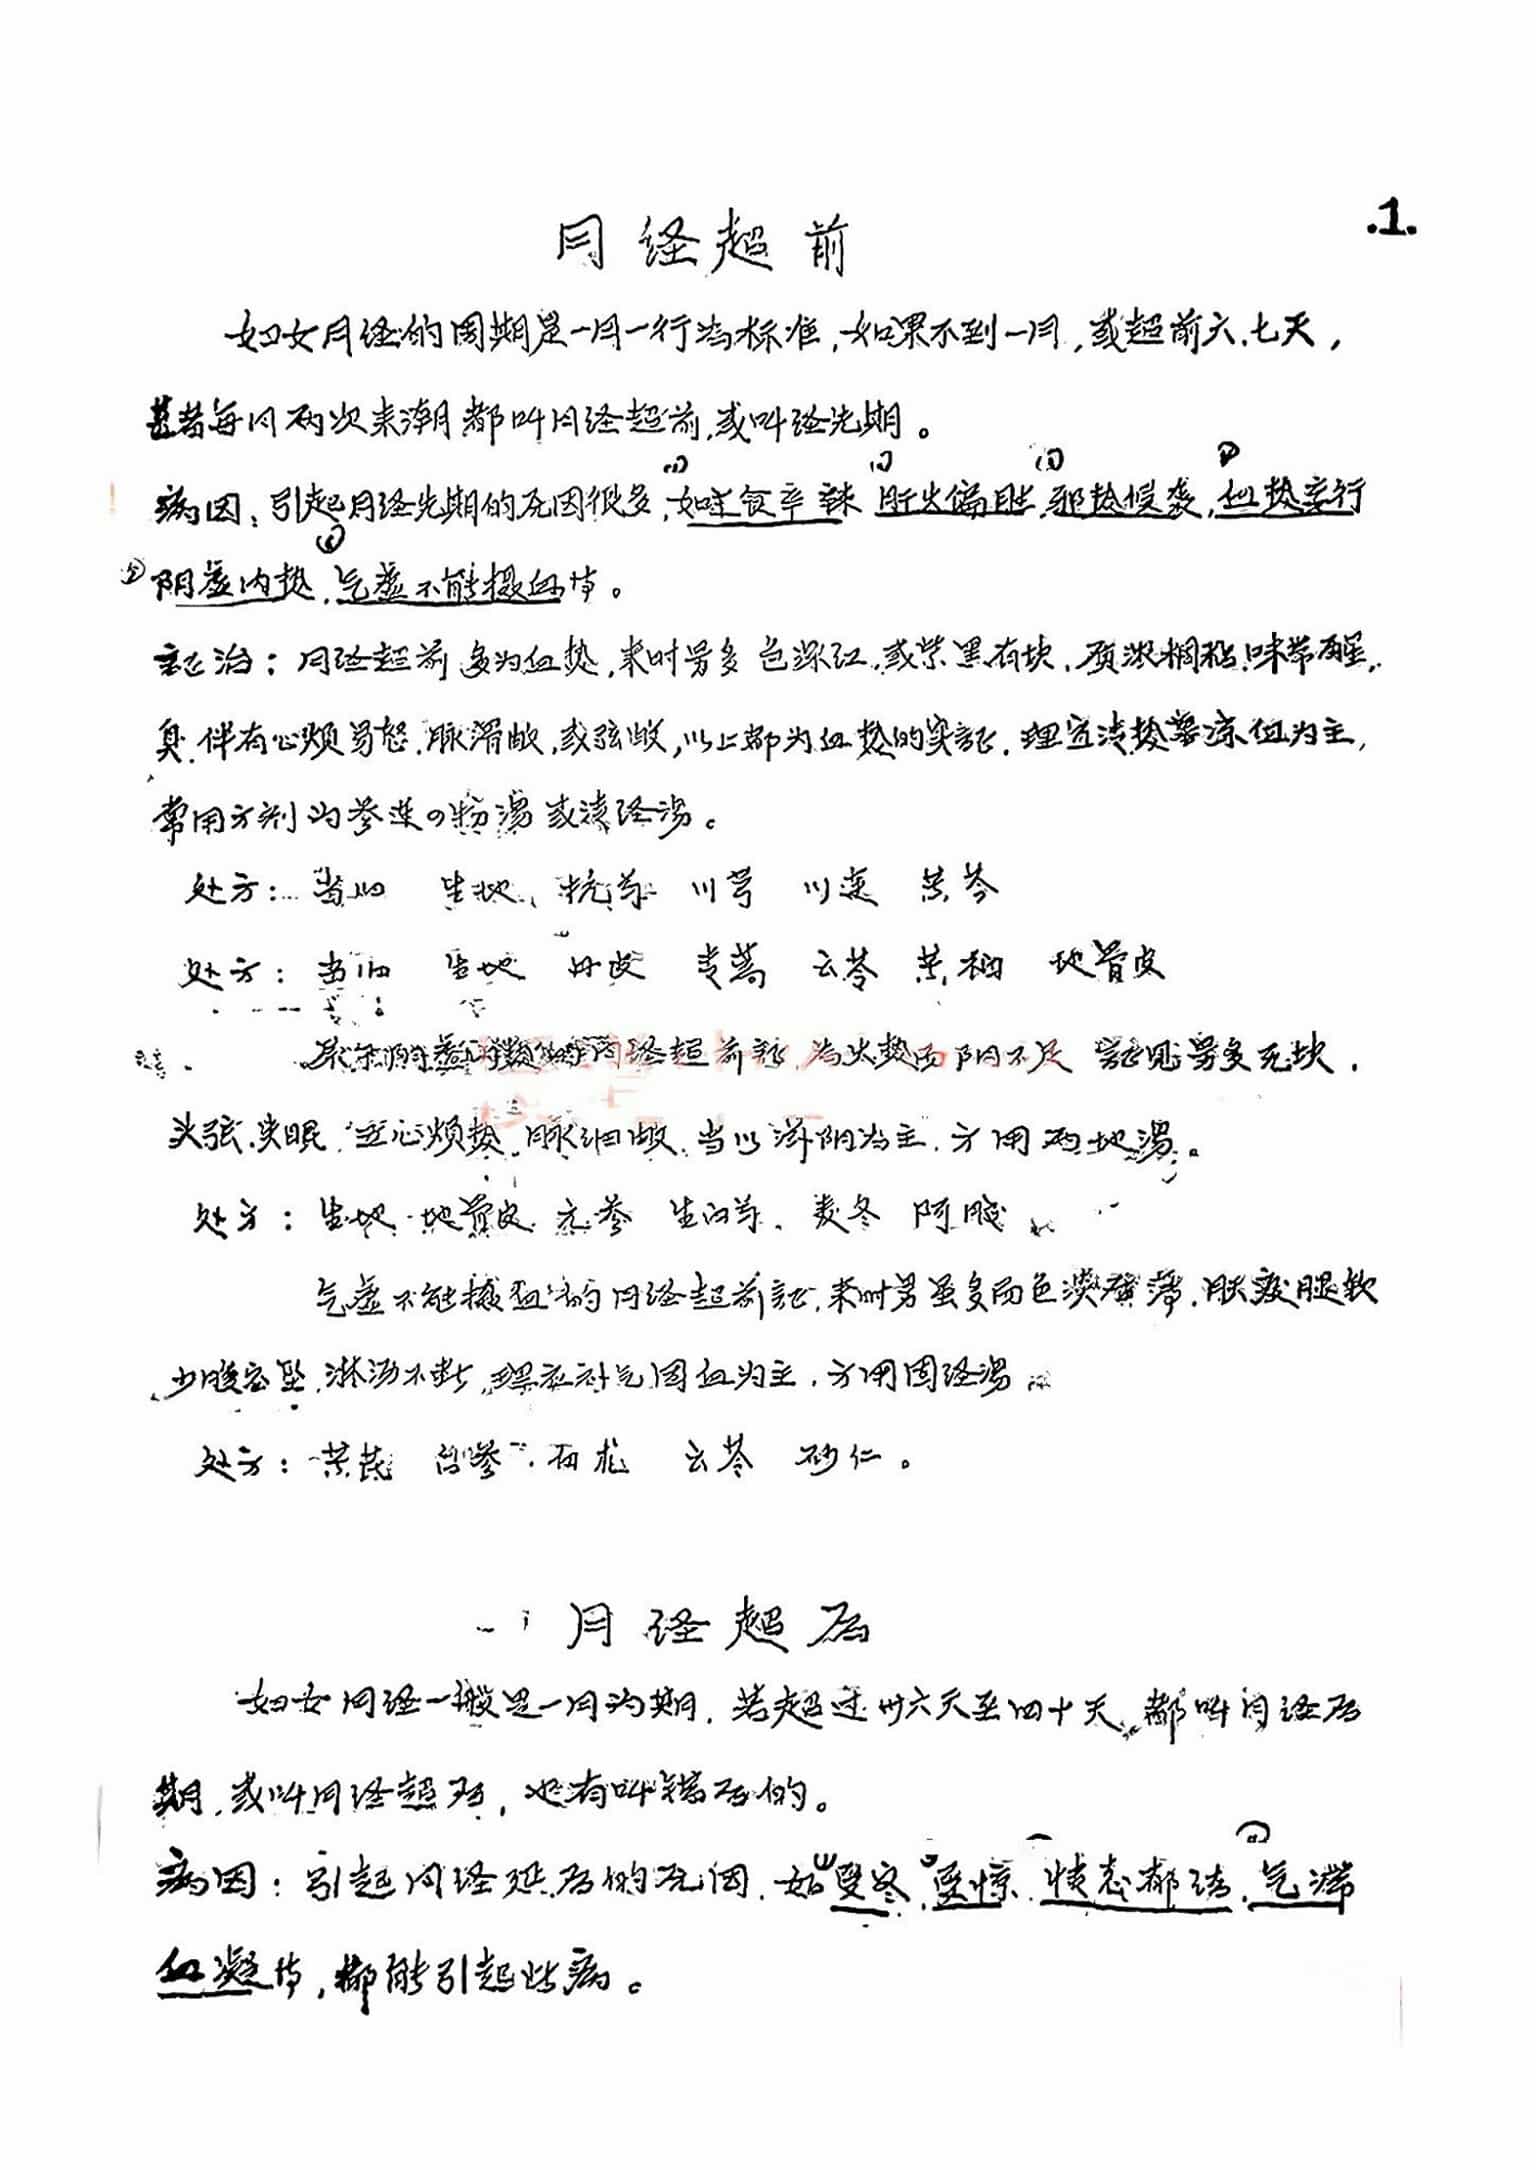 .1.
月经超前
妇女月经的周期是一月一行为标准,如果不到一月,或超前六.七天,
甚者每月两次来潮都叫月经超前,或叫经先期。
病因:引起月经先期的元因很多,如吐食辛辣 肝火偏胜.邪热侵袭,血热妄行
阴虚内热,气虚不能摄血等。
证治:月经超前多为血热,来时男多色深红,或紫黑有块.质浓稠粘.味带腥,
臭.伴有心烦易怒.脉滑数,或弦数,以上都为血热的实证.理宜清热凉血为主,
常用方剂为芩连四物汤或清经汤。
处方: 当归 生地 杭芍 川芎 川连 黄芩
处方: 当归 生地 丹皮 青蒿 云苓 黄柏 地骨皮
月经超前证 为火热而阴不足 证见男多无块.
头弦.失眠 心烦热 脉细数.当以滋阴为主.方用两地汤。
处方: 生地 地骨皮 元参 生白芍 麦冬 阿胶
气虚不能摄血的月经超前证.来时男虽多而色淡薄.肢痠腿软
少腹空坠.淋沥不断,理应补气固血为主.方用固经汤
处方: 黄芪 台参 白术 云苓 砂仁。
月经超后
妇女月经一般是一月为期.若超过卅六天至四十天,都叫月经后
期,或叫月经超后,也有叫错后的。
病因:引起月经延后的元因.如受寒,受惊.情志郁结.气滞
血凝等,都能引起此病。